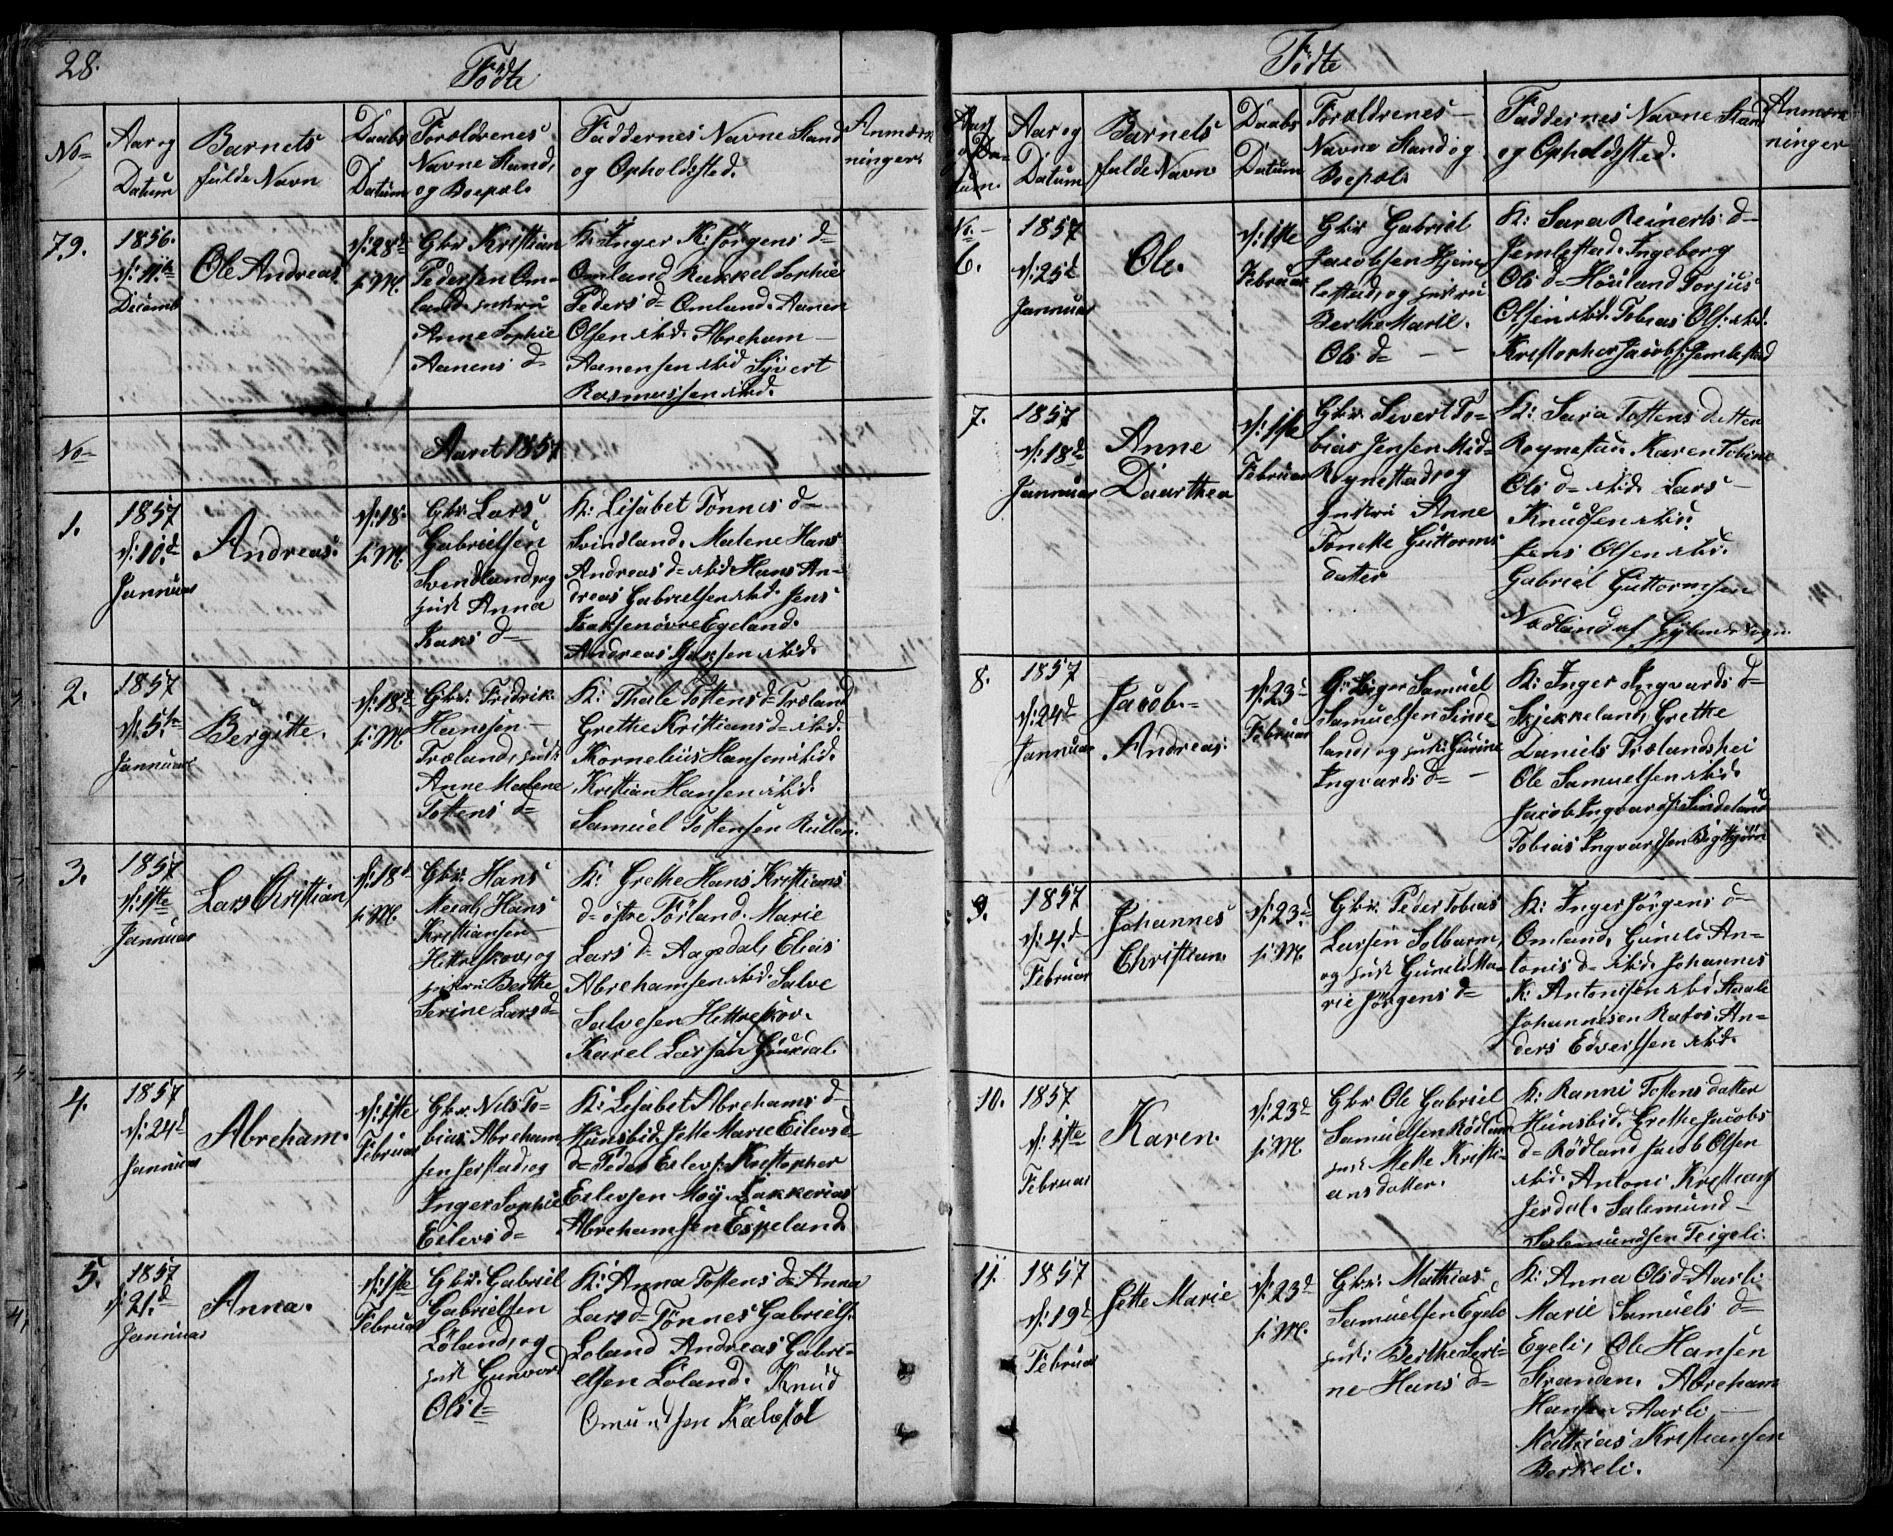 28.
Födte
No
Aar og
Datum
Barnets
fulde Navn
Daabs
Datum
Forældrenes
Navne Stand,
og Boepæl
Faddernes Navne Stand
og Opholdssted.
Anmærk
ninger
79.
1856.
d: 11te
Decemb
Ole Andreas
d: 28d
s: M.
Gbr. Kristian
Pedersen Om-
land, Hustru
Anne Sophie
Aanens d=
K: Inger K: Jörgens d=
Omland Rakkel Sophie
Peders d= Omland. Aanen
Olsen ibid. Abreham
Aanensen ibid Syvert
Rasmussen ibid.
No
Aaret 1857
1.
1857
d: 10d
Januar
Andreas.
d: 18.
s: M.
Gbr. Lars
Gabrielsen
Svindland, og
Hust Anna
Isaks d=
K: Lisabet Tönnes d=
Svindland. Malene Hans
Andreas d= ibid Hans An-
dreas Gabrielsen ibid. Jens
Isaksen övre Egeland.
Andreas Isaksen ibid.
2.
1857
d: 5te
Januar
Bergitte.
d: 18d
s: M.
Gbr: Fredrik
Hanssen
Træland, Hust:
Anne Malene
Tostens d=
K: Thale Tostens d= Træland
Grethe Kristians d= ibid.
Kornelius Hansen ibid.
Kristian Hansen ibid.
Samuel Tostensen Rullen.
3.
1857
d: 1ste
Januar
Lars Christian
d: 18d
s: M.
Gbr. Hans
Meal, Hans
Kristiansen
Hittreskov, og
Hustru Berthe
Serine Lars d=
K: Grethe Hans Kristians
d= östre Förland. Marie
Lars d= Aagedal, Elias
Abrehamsen ibid. Salve
Salvesen Hittreskov.
Karel Larsen Gjurdal.
4.
1857
d: 24d
Januar
Abreham.
d: 1ste
Februar
Gbr. Nils To-
bias Abreham
sen Jerstad, og
Inger Sophie
Eilevs d=
K: Lisabet Abrehams d=
Hunsbid. Jette Marie Eilevs d=
d= Peder Eilevs. Kristopher
Eilevsen Moÿ. Sakkerias
Abrehamsen Espeland.
5.
1857
d: 21.d
Januar
Anna.
d: 1ste
Februar
Gbr. Gabriel
Gabrielsen
Löland, og
Hust Gunvor
Ols d=
K: Anna Tostens d= Anna
Lars d= Tönnes Gabriels.
Loland Andreas Gabri-
elsen Löland. Knud
Omundsen Kalvstöl
Födte
Aar og
Datum
Barnets
fulde Navn
Daabs
Datum
Forældrenes
Navne Stand og
Boepæl
Faddernes Navne Stand
og Opholdssted.
Anmærk
ninger
No.
6.
1857
d: 25d
Januar
Ole.
d: 1ste
Februar
Gbr. Gabriel
Jacobsen Hjem-
lestad, og Hustru
Berthe Marie.
Ols d=
K: Sara Reinerts d=
Jemlestad. Ingeborg
Ols d= Höuland Torjus
Olsen ibid. Tobias Ols. ibid.
Kristopher Jacobs. Jemlestad
7.
1857
d: 18d
Januar
Anne
Daarthea
d: 1ste
Februar
Gbr. Severt To-
bias Jensen Mid-
Röynestad, og
Hustru Anne
Tonette Guttorms
datter
K: Sara Tostens datter
Roynestad. Karen Tobine
Ols d= ibid. Lars
Knudsen ibid.
Jens Olsen ibid.
Gabriel Guttormsen
Nædland af Gyland Sogn.
8.
1857
d: 24d
Januar
Jacob.
Andreas.
d: 23d
Februar
G: Eiger Samuel
Samuelsen Sinde-
land, og Hust: Gurine
Ingvards d=
K: Inger Ingvards d=
Skjekkeland, Grethe
Daniels Trælandshei
Ole Samuelsen ibid.
Jacob Ingvards: Sindeland
Tobias Ingvardsen
9.
1857
d: 4.d
Februar
Johannes
Christian.
d: 23d
s: M.
Gbr. Peder Tobias
Larsen Solbarm,
og Hust Gunild Ma-
rie Jörgens d=
K: Inger Jörgens d=
Omland, Gunild An-
tonis d= ibid. Johannes
K: Antonisen ibid Staale
Johannesen Rafos. An-
ders Edvertsen ibid.
10.
1857
d: 1ste
Februar
Karen.
d: 23d
s: M.
Gbr Ole Gabriel
Samuelsen Rödland
Hust Mette Kristi-
ans datter.
K: Ranni Tostens datter
Hunsbid. Grethe Jacobs
d= Rödland Jacob Olsen
ibid. Antoni Kristians
Jerdal. Salemund
Salemundsen Teigeli.
11.
1857
d: 19d
Februar
Jette Marie
d: 23d
s: M.
Gbr. Mathias
Samuelsen Egeli
Hust: Berthe Seri-
ne Hans d=
K: Anna Ols d= Aarli
Marie Samuels d=
Egeli, Ole Hansen
Stranden. Abreham
Hansen Aarli
Mathias Kristiansen
Berkeli.